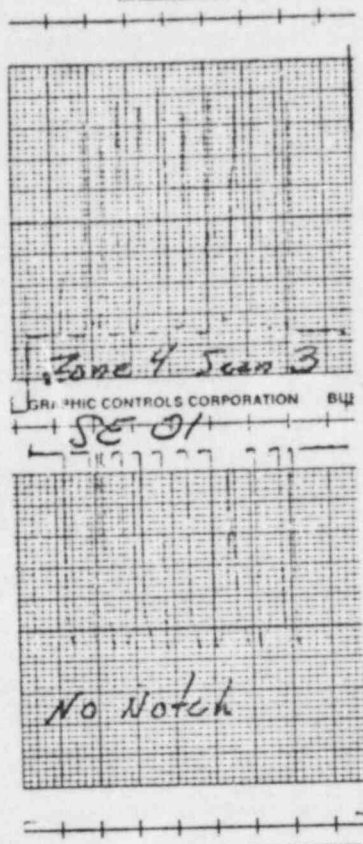 Zone 4 Scan 3
GRAPHIC CONTROLS CORPORATION BU
SE 01
No Notch